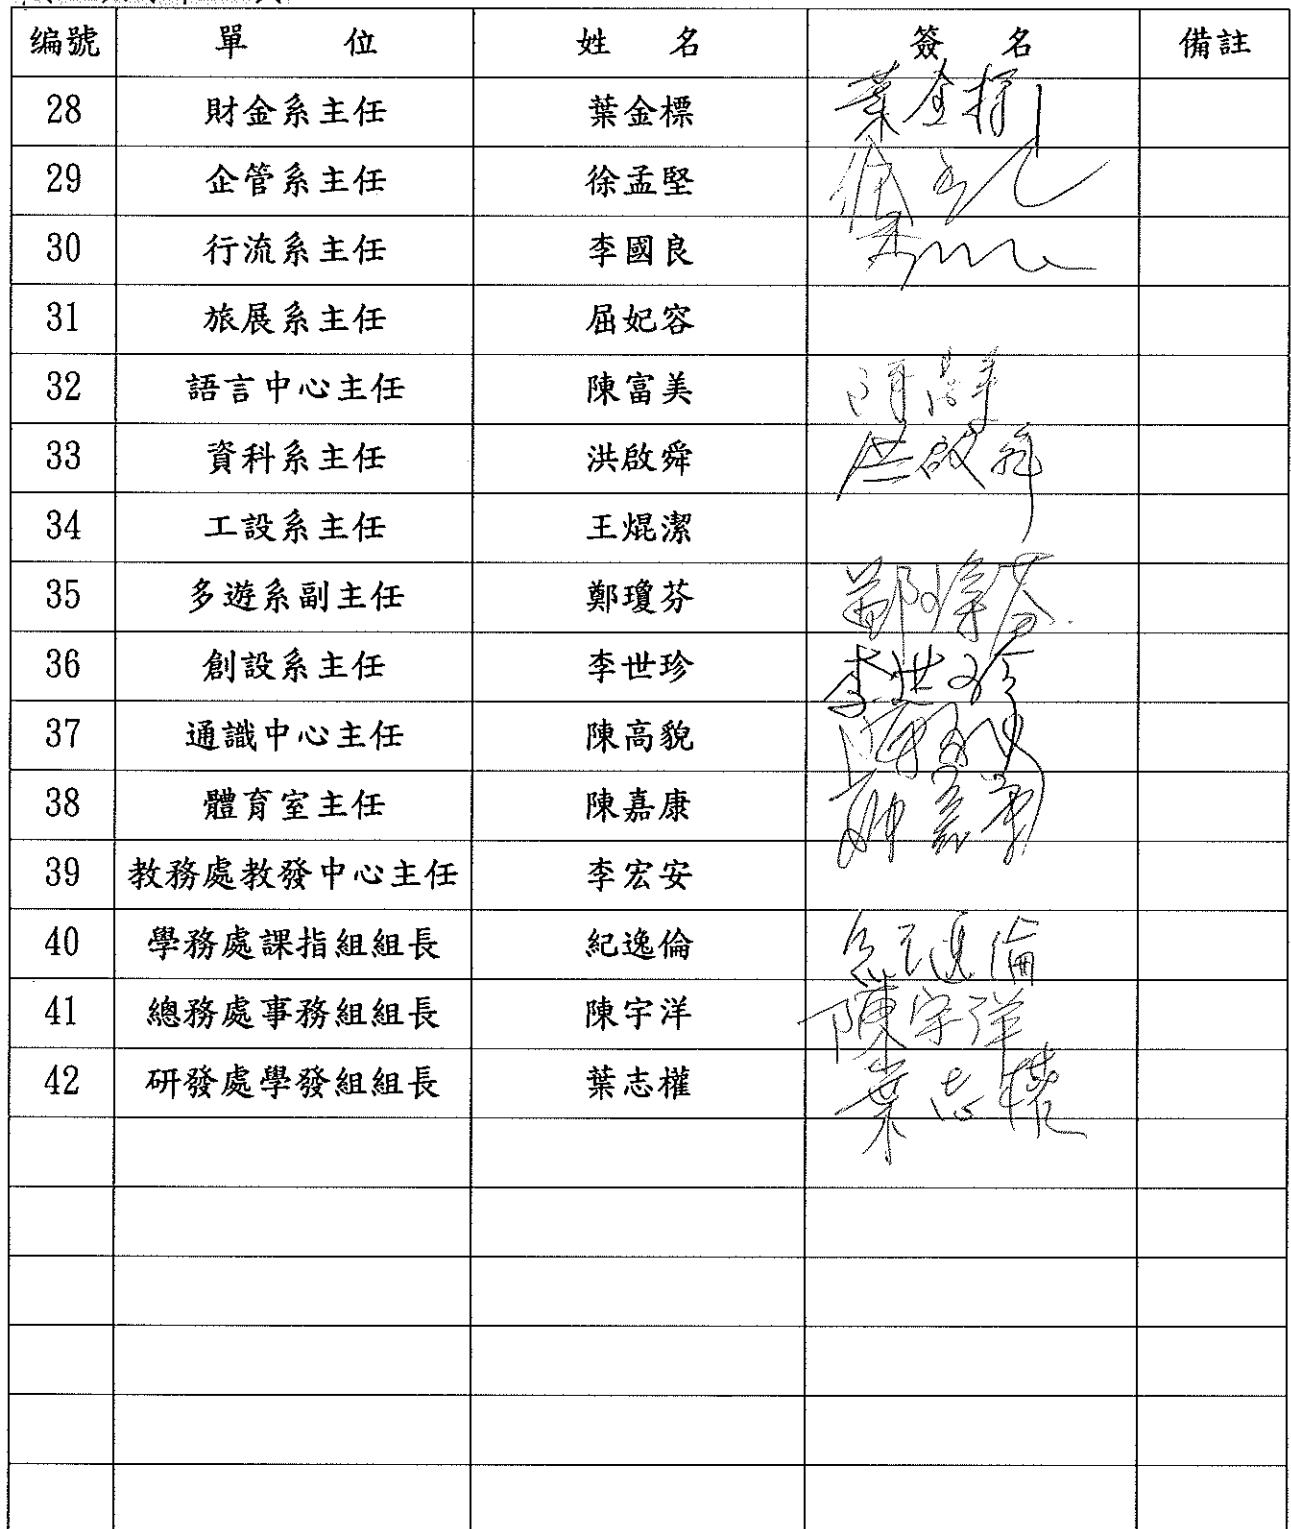 编號 單位 姓名 簽名 備註
28 財金系主任 葉金標 葉金標
29 企管系主任 徐孟堅
30 行流系主任 李國良
31 旅展系主任 屈妃容
32 語言中心主任 陳富美
33 資科系主任 洪啟舜 洪啟舜
34 工設系主任 王焜潔
35 多遊系副主任 鄭瓊芬 鄭瓊芬
36 創設系主任 李世珍 李世珍
37 通識中心主任 陳高貌
38 體育室主任 陳嘉康
39 教務處教發中心主任 李宏安
40 學務處課指組組長 紀逸倫 紀逸倫
41 總務處事務組組長 陳宇洋 陳宇洋
42 研發處學發組組長 葉志權 葉志權